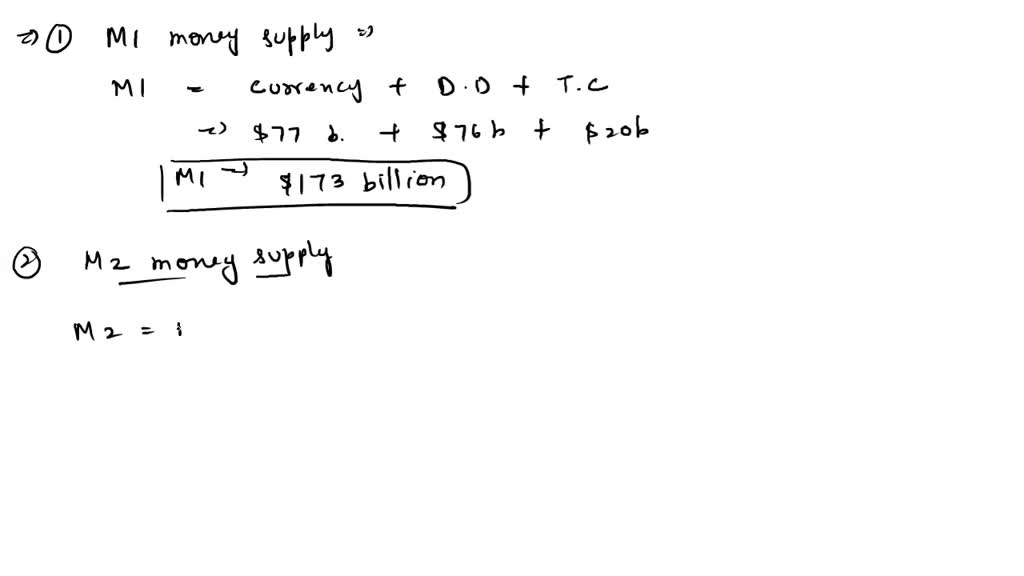 => ① M1 money supply =>
M1 = currency + D.D + T.C
=> $77 b. + $76 b + $20b
M1 → $173 billion
② M2 money supply
M2 =